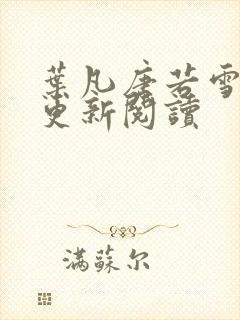 葉凡唐若雪
更新閱讀
滿蘇尔